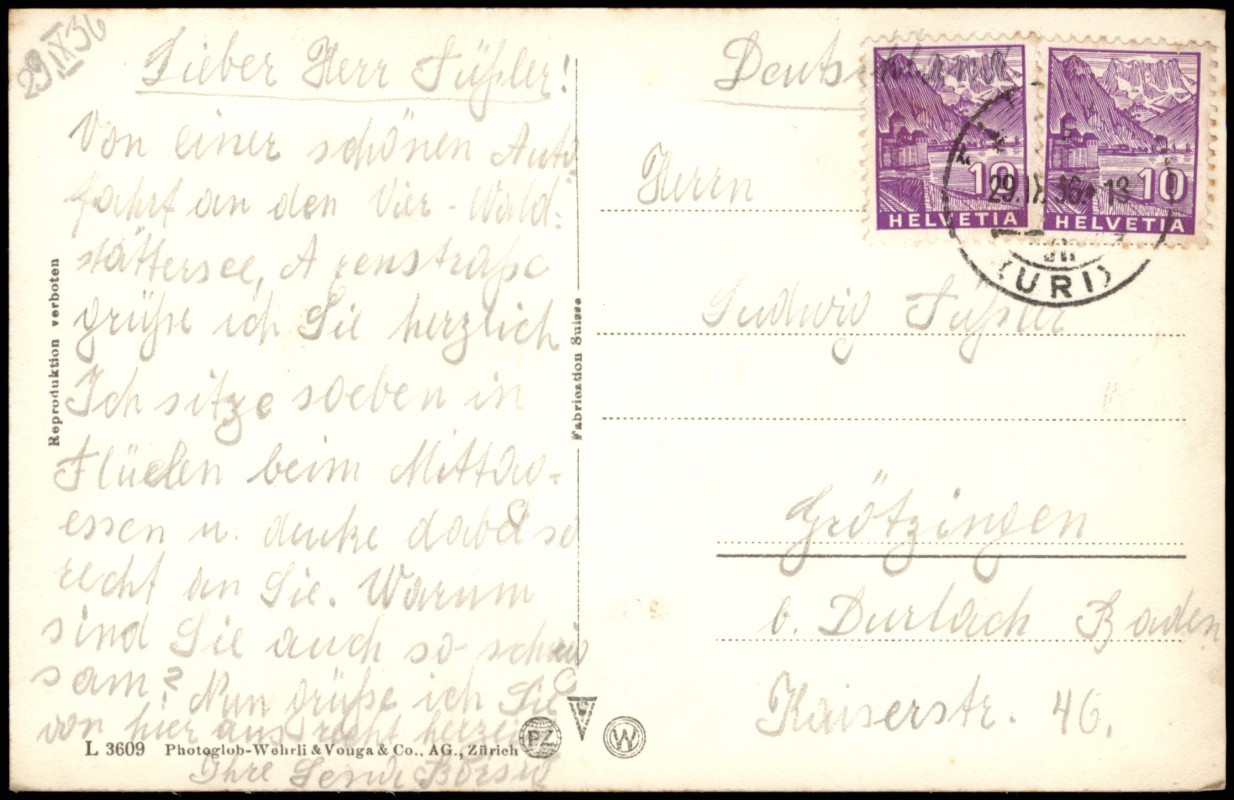 29 IX 36
Lieber Herr Füßler!
Von einer schönen Auto
fahrt an den Vier-Wald-
stättersee, Axenstraße
grüße ich Sie herzlich
Ich sitze soeben in
Flüelen beim Mittag-
essen u. denke dabei so
recht an Sie. Warum
sind Sie auch so schweig
sam? Nun grüße ich Sie
von hier aus recht herzlich
Ihre
Deutschland
Herrn
Ludwig Füßler
Grötzingen
b. Durlach Baden
Kaiserstr. 46.
10
HELVETIA
10
HELVETIA
29.IX.36. 13
(URI)
Reproduktion verboten
Fabrication Suisse
L 3609 Photoglob-Wehrli & Vouga & Co., AG., Zürich
PZ
W